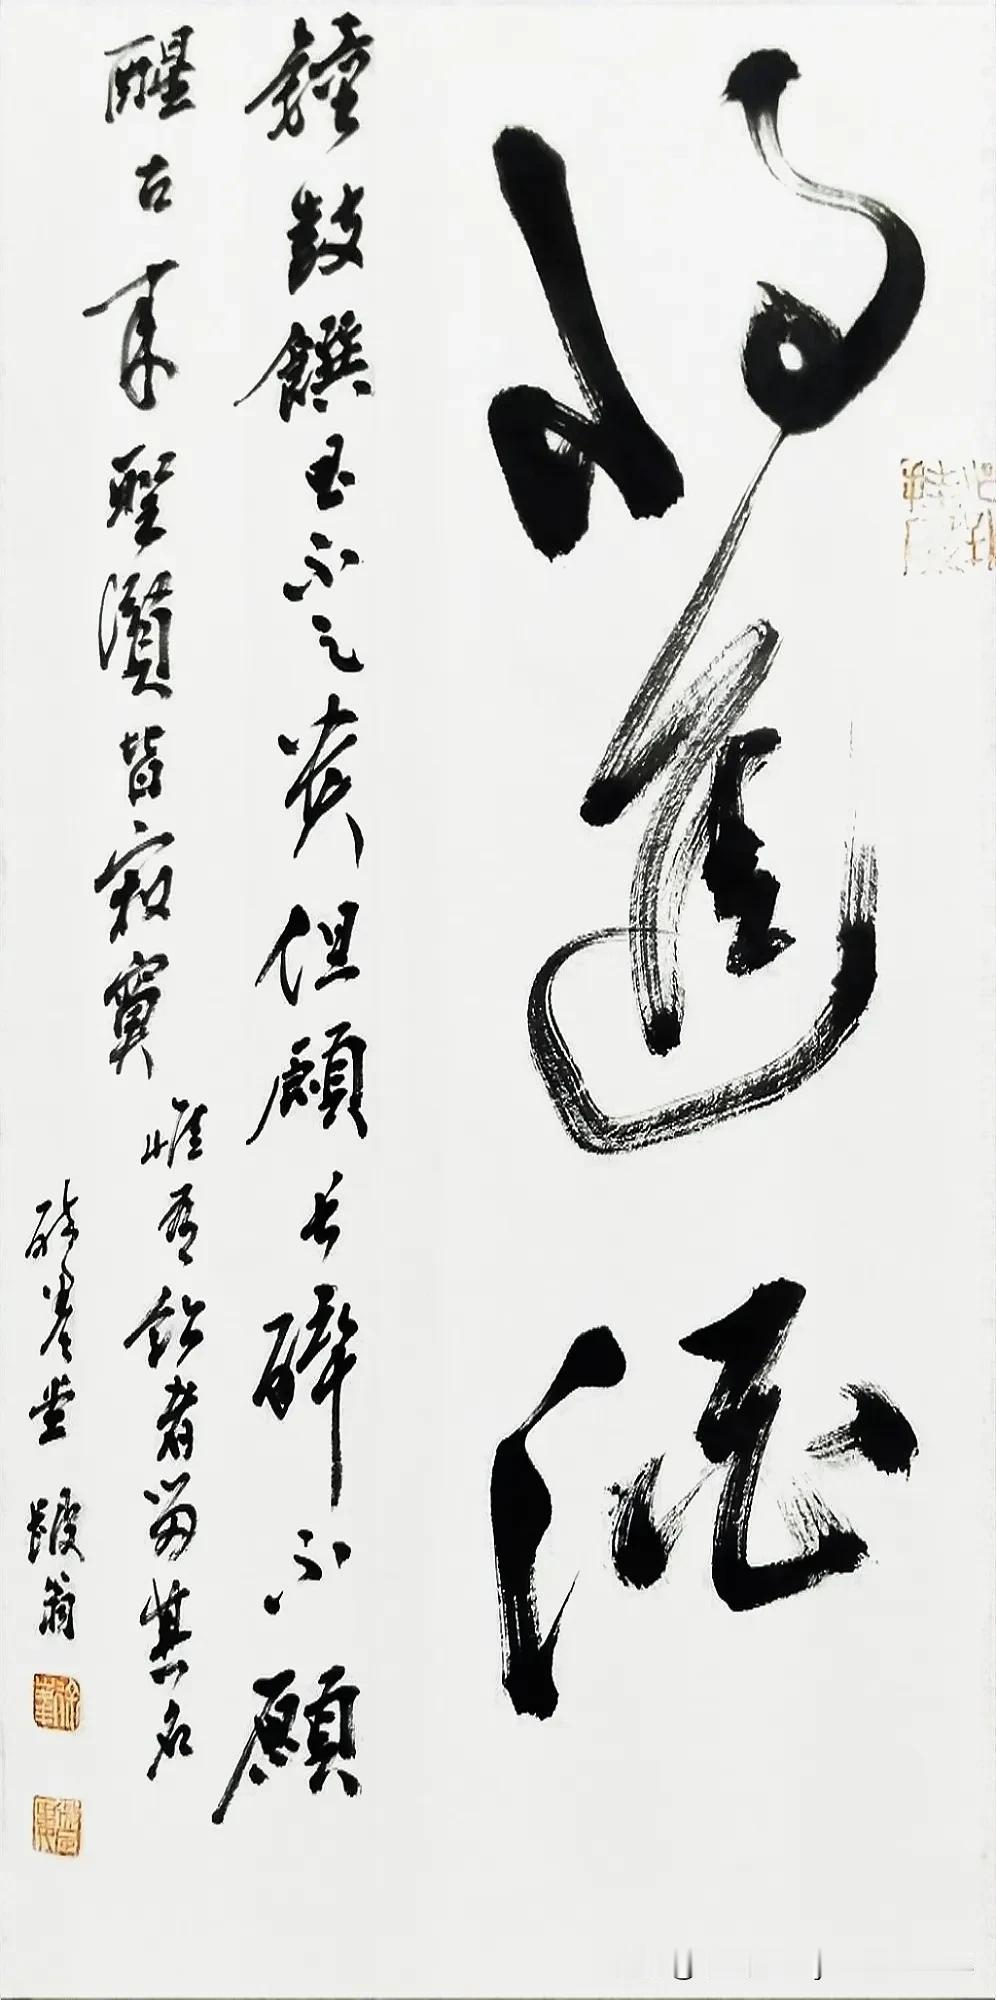 將進酒
鐘鼓饌玉不足貴但願长醉不願
醒古来聖賢皆寂寞惟有飲者留其名
堂 翁